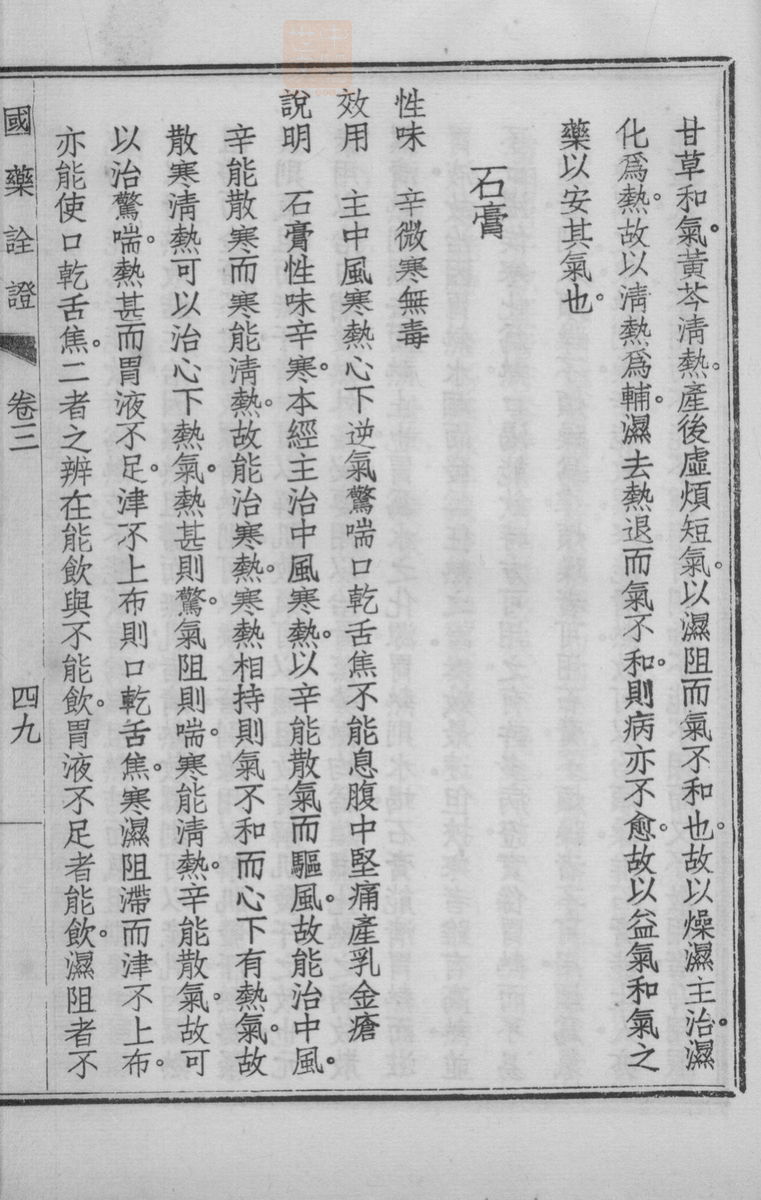 甘草和氣。黃芩淸熱。產後虛煩短氣。以濕阻而氣不和也。故以燥濕主治。濕
化爲熱。故以淸熱爲輔。濕去熱退而氣不和。則病亦不愈。故以益氣和氣之
藥以安其氣也。
石膏
性味　辛微寒無毒
效用　主中風寒熱心下逆氣驚喘口乾舌焦不能息腹中堅痛產乳金瘡
說明　石膏性味辛寒。本經主治中風寒熱。以辛能散氣而驅風。故能治中風。
辛能散寒而寒能淸熱。故能治寒熱。寒熱相持則氣不和而心下有熱氣。故
散寒淸熱可以治心下熱氣。熱甚則驚。氣阻則喘。寒能淸熱。辛能散氣。故可
以治驚喘。熱甚而胃液不足。津不上布則口乾舌焦。寒濕阻滯而津不上布。
亦能使口乾舌焦。二者之辨在能飲與不能飲。胃液不足者能飲。濕阻者不
國藥詮證　卷三　四九